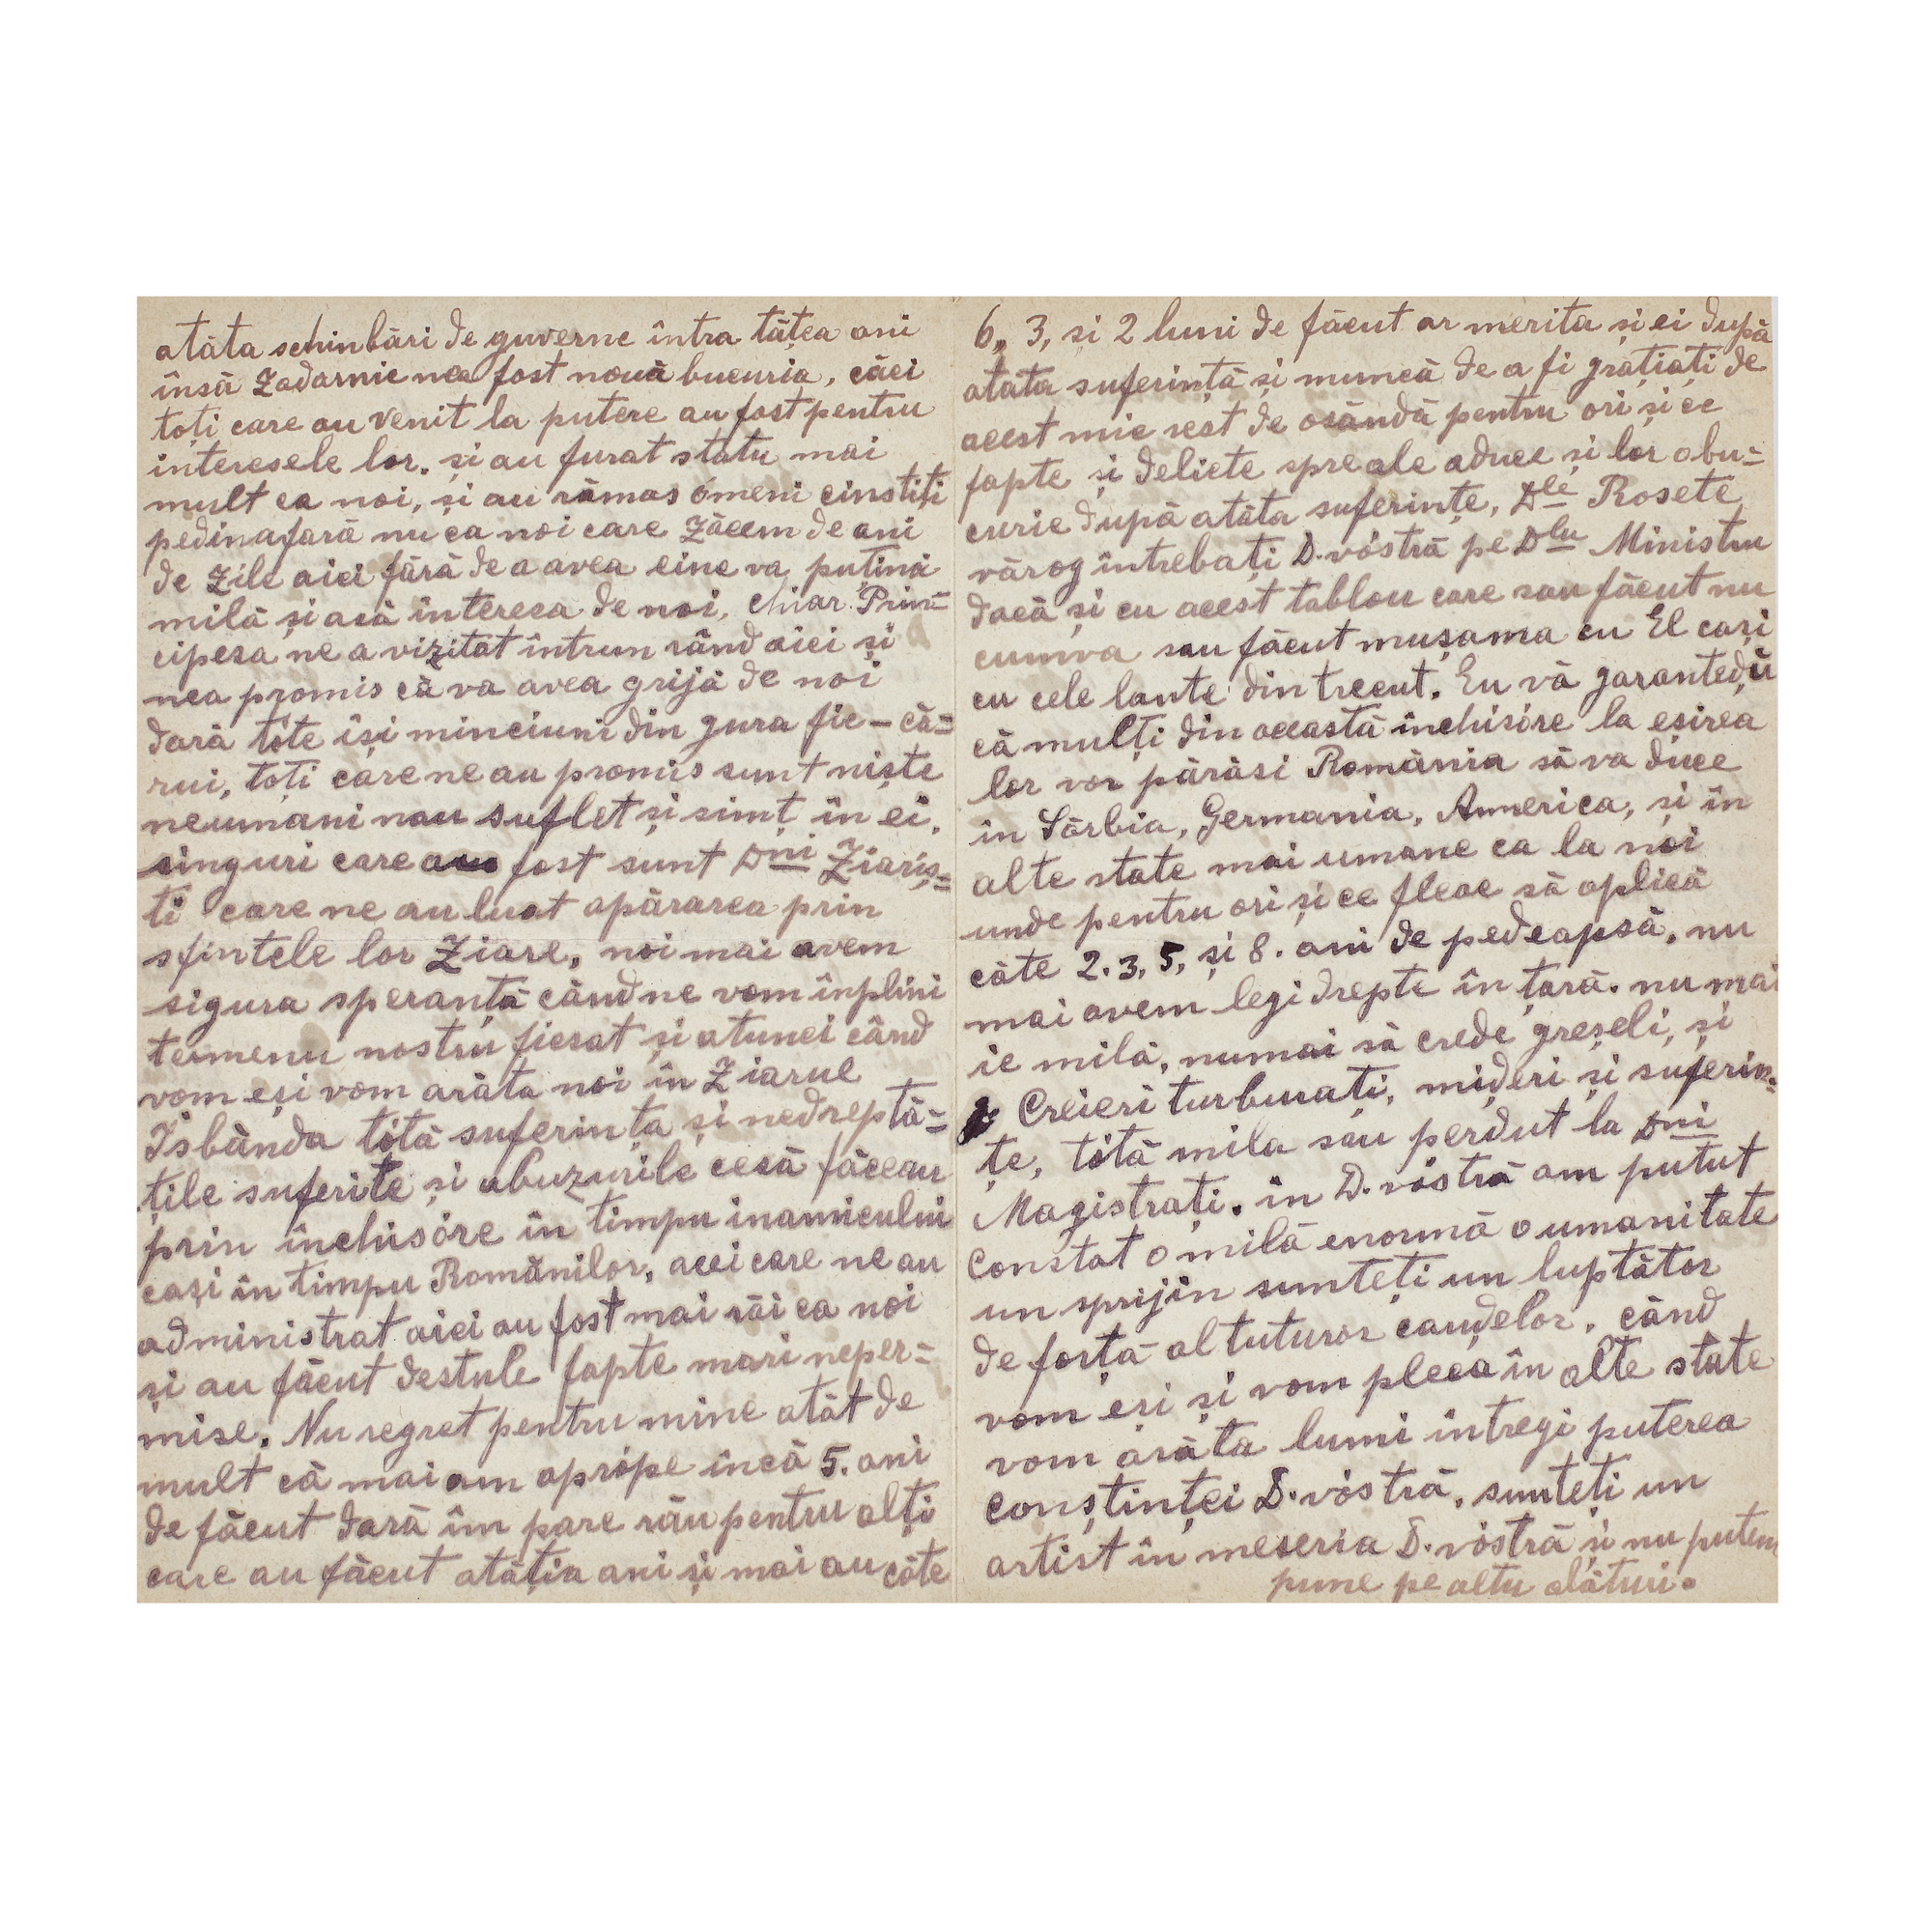 atâta schinbări de guverne întra tâtea ani
însă Zadarnic nea fost nouă bucuria, căci
toți care au venit la putere au fost pentru
interesele lor. și au furat statu mai
mult ca noi, și au rămas ómeni cinstiți
pedinafară nu ca noi care Zăcem de ani
de Zile aici fără de a avea cine va puțină
milă și asă interesa de noi, chiar Prin=
cipesa ne a vizitat întrun rând aici și
nea promis că va avea grijă de noi
dară tóte își minciuni din gura fie-că=
rui, toți care ne au promis sunt niște
neumani nau suflet și simț în ei.
singuri care au fost sunt Dni Ziariș=
ti care ne au luat apărarea prin
sfintele lor Ziare, noi mai avem
sigura speranță când ne vom înplini
termenu nostru ficsat și atunci când
vom eși vom arăta noi în Ziarul
Isbânda tótă suferința și nedreptă=
țile suferite și abuzurile cesă făceau
prin închisóre în timpu inamicului
cași în timpu Românilor, acei care ne au
administrat aici au fost mai răi ca noi
și au făcut destule fapte mari neper=
mise. Nu regret pentru mine atât de
mult că mai am aprópe încă 5. ani
de făcut dară îm pare rău pentru alți
care au făcut atâția ani și mai au câte
6,, 3, și 2 luni de făcut ar merita și ei după
atâta suferință și muncă de a fi grațiați de
acest mic rest de osândă pentru ori și ce
fapte și delicte spre ale aduce și lor abu=
curie după atâta suferințe, Dle Rosete
vărog întrebați D. vóstră pe Dlu Ministru
dacă și cu acest tablou care sau făcut nu
cumva sau făcut mușama cu El cași
cu cele lante din trecut. Eu vă garantedu
că mulți din această închisóre la eșirea
lor vor părăsi România să va duce
în Sărbia, Germania, Annerica, și în
alte state mai umane ca la noi
unde pentru ori și ce fleac să aplică
câte 2. 3, 5, și 8. ani de pedeapsă, nu
mai avem legi drepte în țară. nu mai
ie milă, numai să crede greșeli, și
Creieri turburați, mideri și suferin=
țe, tótă mila sau perdut la Dni
Magistrați. în D. vóstră am putut
constat o milă enormă o umanitate
un sprijin sunteți un luptător
de forță al tuturor caudelor. când
vom eși și vom pleca în alte state
vom arăta lumi întregi puterea
conștinței D. vóstră. sunteți un
artist în meseria D. vóstră și nu putem
pune pe altu alături.